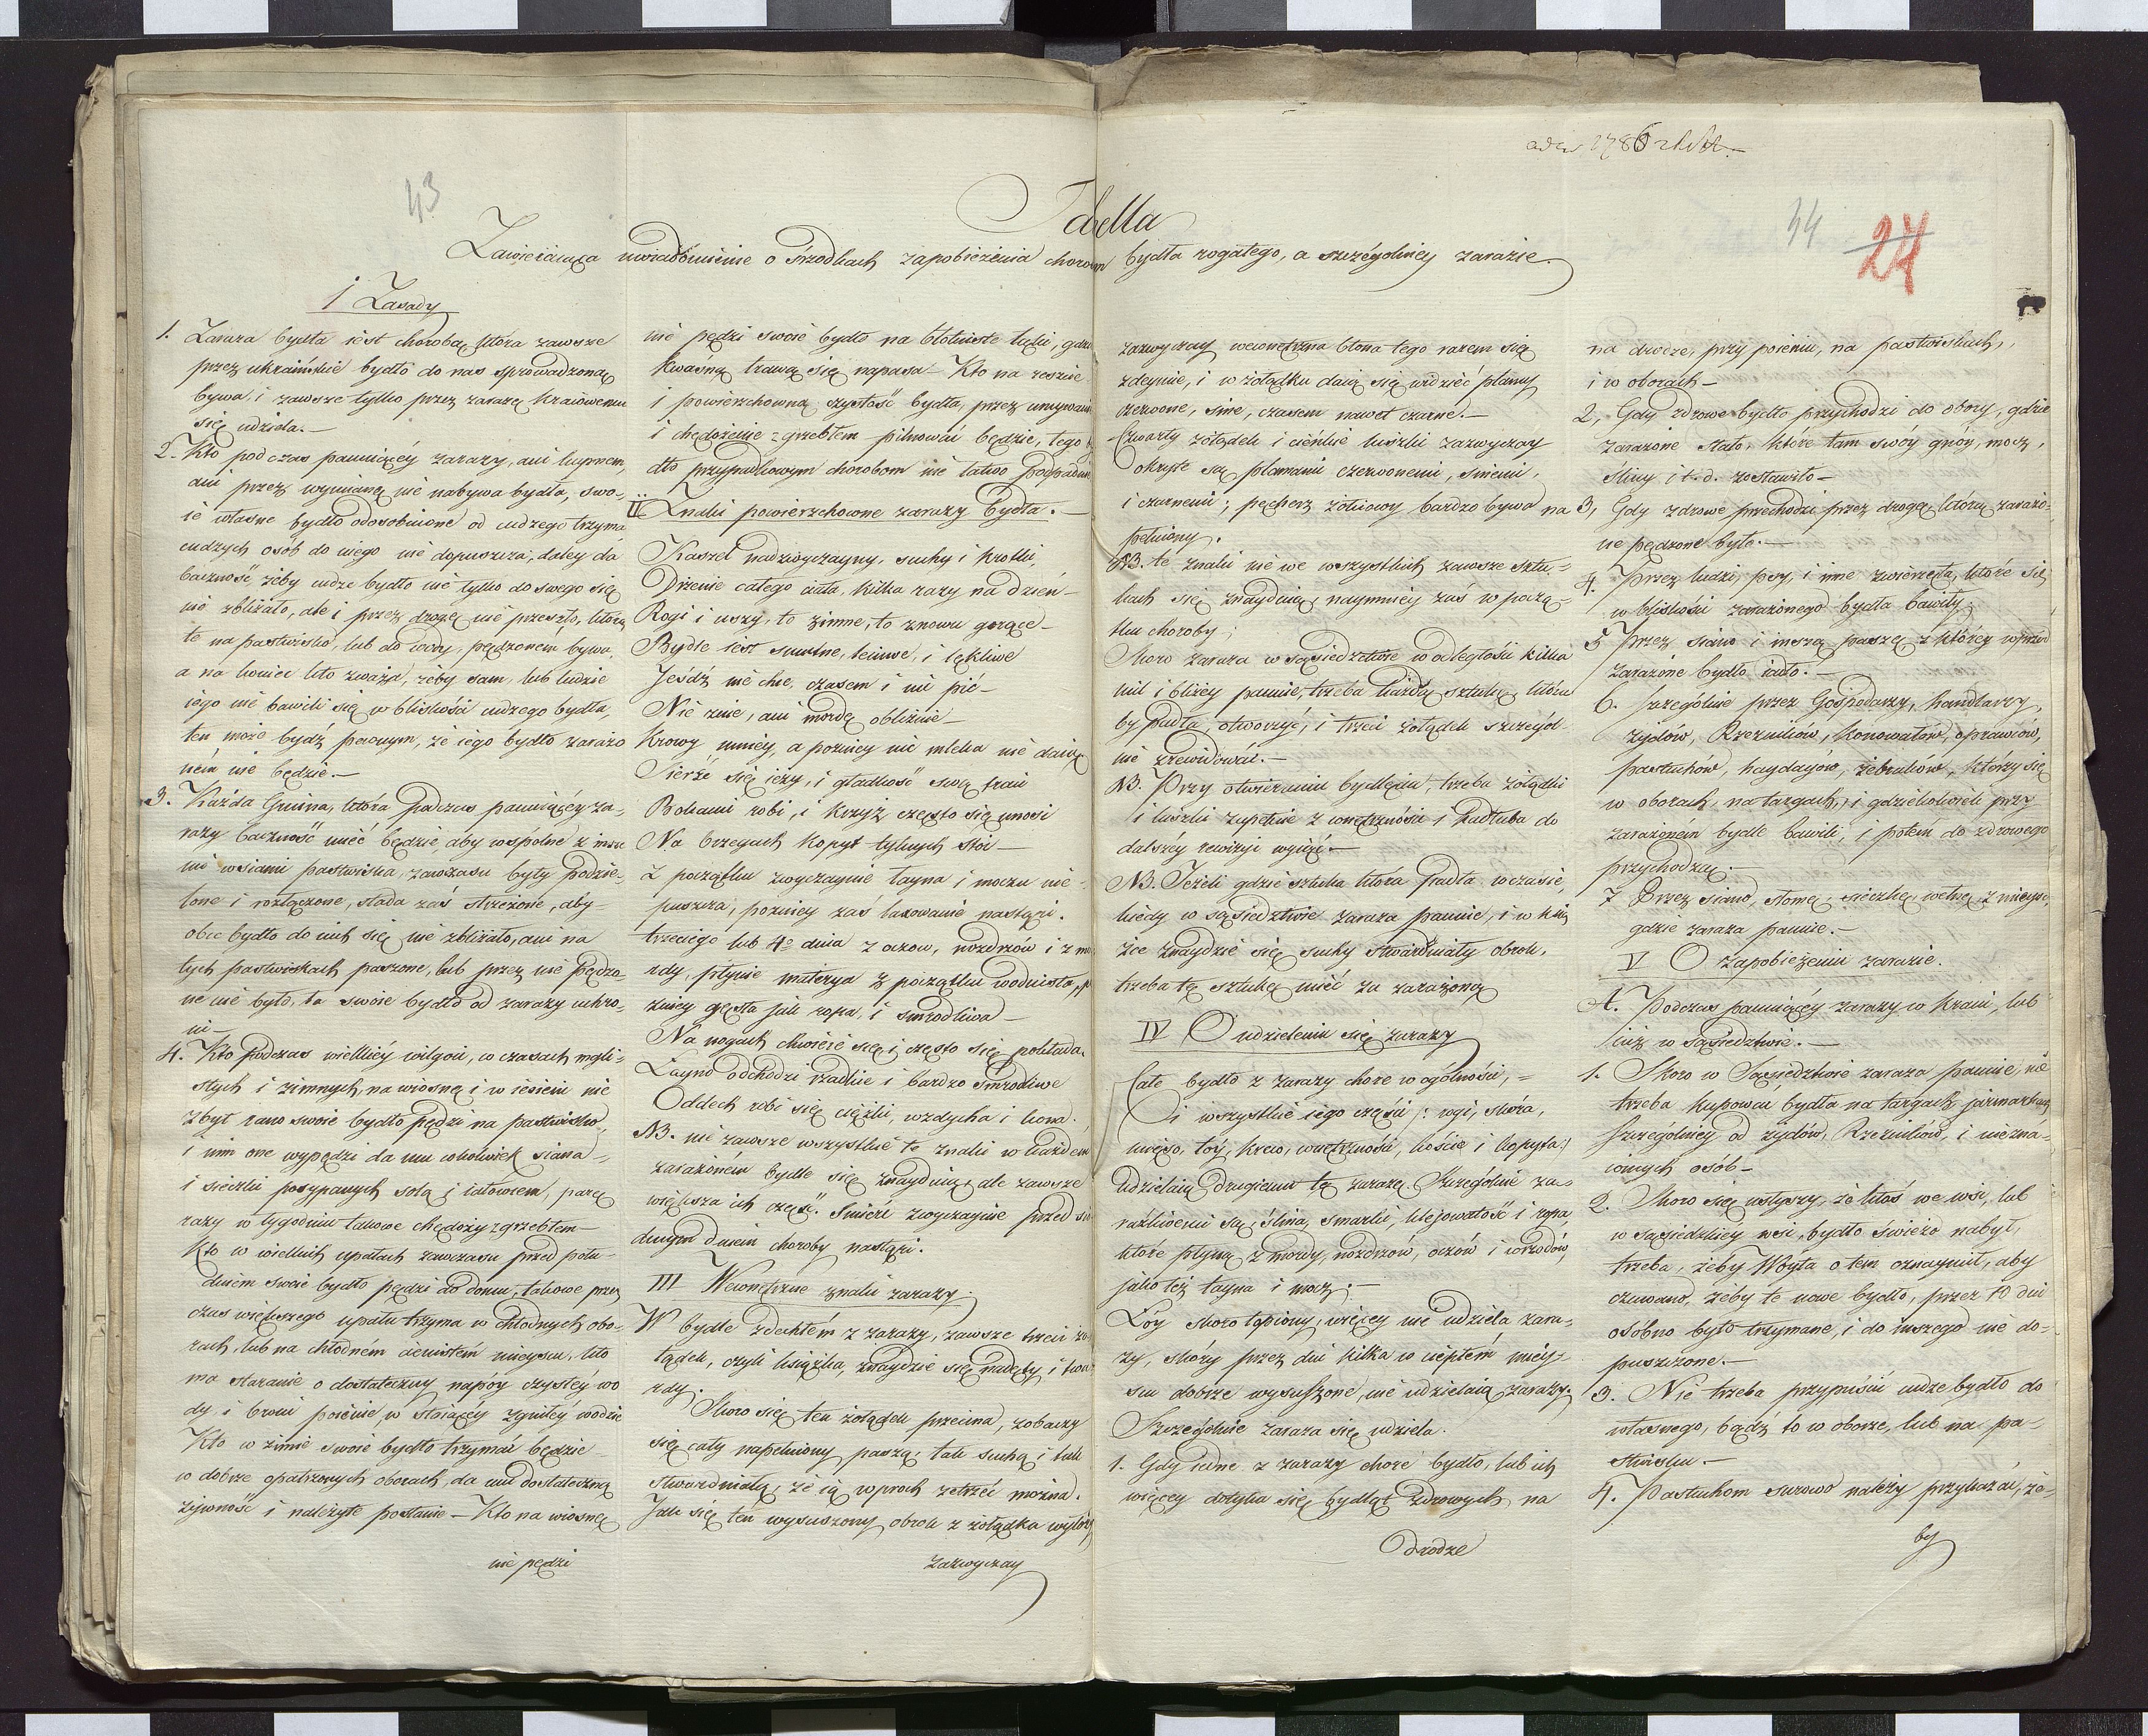 43
44
24
Tabella
Zawieraiąca uwiadomienie o środkach zapobieżenia chorom bydła rogatego, a szczególniey zarazie.
I Zasady
1. Zaraza bydła iest chorobą, która zawsze
przez ukraińskie bydło do nas sprowadzoną
bywa, i zawsze tylko przez zarazę kraiowemu
się udziela.—
2. Kto podczas panuiącéy zarazy, ani kupnem,
ani przez wymianę nie nabywa bydła, swo-
ie własne bydło odosobnione od cudzego trzyma
cudzych osób do niego nie dopuszcza, daley da
baczność żeby cudze bydło nie tylko do swego się
nie zbliżało, ale i przez drogę nie przeszło, którą
te na pastwisko, lub do wody, pędzoném bywa,
a na koniec kto zważa, żeby sam, lub ludzie
iego nie bawili się w bliskości cudzego bydła,
ten może bydź pewnym, że iego bydło zarażo
ném nie będzie.—
3. Każda Gmina, która podczas panuiącéy za-
razy baczność mieć będzie, aby wspólne z inne
mi wsiami pastwiska, zawczasu były podzie-
lone i rozłączone, stada zaś strzeżone, aby
obce bydło do nich się nie zbliżało, ani na
tych pastwiskach paszone, lub przez nie pędzo-
ne nie było, ta swoie bydło od zarazy uchro-
ni—
4. Kto podczas wielkiéy wilgoci, w czasach mgli-
stych i zimnych, na wiosnę i w iesieni nie
zbyt rano swoie bydło pędzi na pastwisko,
i nim one wypędzi da mu cokolwiek siana,
i sieczki posypanych solą i iałowcem, parę
razy w tygodniu takowe chędoży zgrzebłem—
Kto w wielkich upałach zawczasu przed połu-
dniem swoie bydło pędzi do domu, takowe przez
czas większego upału trzyma w chłodnych obo-
rach, lub na chłodném cienistém mieyscu, kto
ma staranie o dostateczny napóy czystéy wo
dy i broni poienie w stoiącéy zgniłéy wodzie
Kto w zimie swoie bydło trzymać będzie
w dobrze opatrzonych oborach, da mu dostateczną
żywność i należyte posłanie—Kto na wiosnę
nie pędzi
nie pędzi swoie bydło na błotniste łąki, gdzie
kwaśną trawą się napasa—Kto na reszcie
i powierzchowną czystość bydła, przez umywanie
i chędożenie zgrzebłem pilnować będzie, tego by
dło przypadkowym chorobom nie łatwo podpadnie
II Znaki powierzchowne zarazy bydła.—
Kaszel nadzwyczayny, suchy i krotki,
Drżenie całego ciała, kilka razy na dzień—
Rogi i uszy, to zimne, to znowu gorące—
Bydle iest smutne, leniwe, i lękliwe
Jeśdź nie chce, czasem i nie pić—
Nie żuie, ani mordę obliżuie—
Krowy mniéy, a pozniey nic mleka nie daią
Sierść się ieży, i gładkość swą traci
Bokami robi, i krzyż często się unosi
Na brzegach kopyt tylnych stoi—
Z początku zwyczaynie łayna i moczu nie-
puszcza, pozniey zaś laxowanie nastąpi.
trzeciego lub 4º dnia z oczow, nozdrzów i z mo
rdy, płynie materya z początku wodnista, po
zniey gęsta jak ropa, i smrodliwa—
Na nogach chwieie się i często się pokłada,
Łayno odchodzi rzadkie i bardzo smrodliwe
Oddech robi się ciężki, wzdycha i kona.
NB. nie zawsze wszystkie te znaki w każdem
zarażoném bydle się znayduią, ale zawsze
większa ich część. Śmierć zwyczaynie przed sió
dmym dniem choroby nastąpi.
III Wewnętrzne znaki zarazy.
W bydle zdechłém z zarazy, zawsze trzeci żo-
łądek, czyli książka, znaydzie się nadęty, i twa
rdy.
Skoro się ten żołądek przecina, zobaczy
się cały napełniony paszą, tak suchą i tak
stwardniałą, że ią w proch zetrzéć można.
Jak się ten wysuszony obrok z żołądka wyłoży
zazwyczay
zazwyczay wewnętrzna błona tego razem się
zdeymie, i w żołądku daią się widzieć plamy
czerwone, sine, czasem nawet czarne.—
Czwarty żołądek i cieńkie kiszki zazwyczay
okryte są plamami czerwonemi, sinemi,
i czarnemi; pęcherz żółciowy bardzo bywa na
pełniony.
NB. te znaki nie we wszystkich zawsze sztu-
kach się znayduią, naymniéy zaś w począ-
tku choroby;
Skoro zaraza w sąsiedztwie w odległości kilku
mil i bliżéy panuie, trzeba każdą sztukę, która
by padła, otworzyć, i trzeci żołądek szczegól
nie zrewidować.—
NB. Przy otwieraniu bydlęcia, trzeba żołądki
i kiszki zupełnie z wnętrzności i kadłuba do
dalszéy rewizyi wyiąć.—
NB. Jeżeli gdzie sztuka która padła w czasie,
kiedy w sąsiedztwie zaraza panuie, i w ksią
żce znaydzie się suchy stwardniały obrok,
trzeba tę sztukę mieć za zarażoną
IV O udzieleniu się zarazy
Całe bydło z zarazy chore w ogólności,
i wszystkie iego części /: rogi, skóra,
mięso, łóy, krew, wnętrzności, kości i kopyta:/
udzielaią drugiemu tę zarazę. Szczególnie za-
raźliwemi są, ślina, smarki, kleiowatość i ropa,
które płyną z mordy, nozdrzów, oczów i wrzodów,
jako też łayna i mocz.—
Łóy skoro topiony, więcey nie udziela zara-
zy, skóry przez dni kilka w ciepłém miéy-
scu dobrze wysuszone, nie udzielaią zarazy.
Szczególnie zaraza się udziela.
1. Gdy iedne z zarazy chore bydło, lub ich
więcey dotyka się bydląt zdrowych, na
drodze
na drodze, przy poieniu, na pastwiskach,
i w oborach—
2, Gdy zdrowe bydło przychodzi do obory, gdzie
zarażone stało, które tam swóy gnóy, mocz,
śliny i t. d. zostawiło—
3, Gdy zdrowe przechodzi przez drogę, którą zarażo-
ne pędzone było.—
4. Przez ludzi, psy, i inne zwierzęta, które się
w bliskości zarażonego bydła bawiły,
5 Przez siano i inszą paszę, z któréy wprzód
zarażone bydło iadło.—
6. Szczególnie przez Gospodarzy, handlarzy,
żydów, Rzezników, Konowałów, oprawców,
pastuchów, haydayów, żebraków, którzy się
w oborach, na targach, i gdziekolwiek przy
zarażonem bydle bawili, i potém do zdrowego
przychodzą.
7 Przez siano, słomę, sieczkę, wełnę, z mieysc,
gdzie zaraza panuie.—
V O zapobieżeniu zarazie.
A. Podczas panuiącéy zarazy w kraiu, lub
iuż w sąsiedztwie.—
1. Skoro w Sąsiedztwie zaraza panuie, nie
trzeba kupować bydła na targach, jarmarkach,
szczególniey od żydów, Rzezników, i niezna-
iomych osób—
2. Skoro się usłyszy, że ktoś we wsi, lub
w sąsiedzkiey wsi, bydło świeżo nabył,
trzeba, żeby Wóyta o tem oznaymił, aby
czuwano, żeby te nowe bydło, przez 10 dni
osobno było trzymane, i do inszego nie do-
puszczone.—
3. Nie trzeba przypuścić cudze bydło do
własnego, bądź to w oborze, lub na pa-
stwisku.—
4. Pastuchom surowo należy przykazać, że-
by